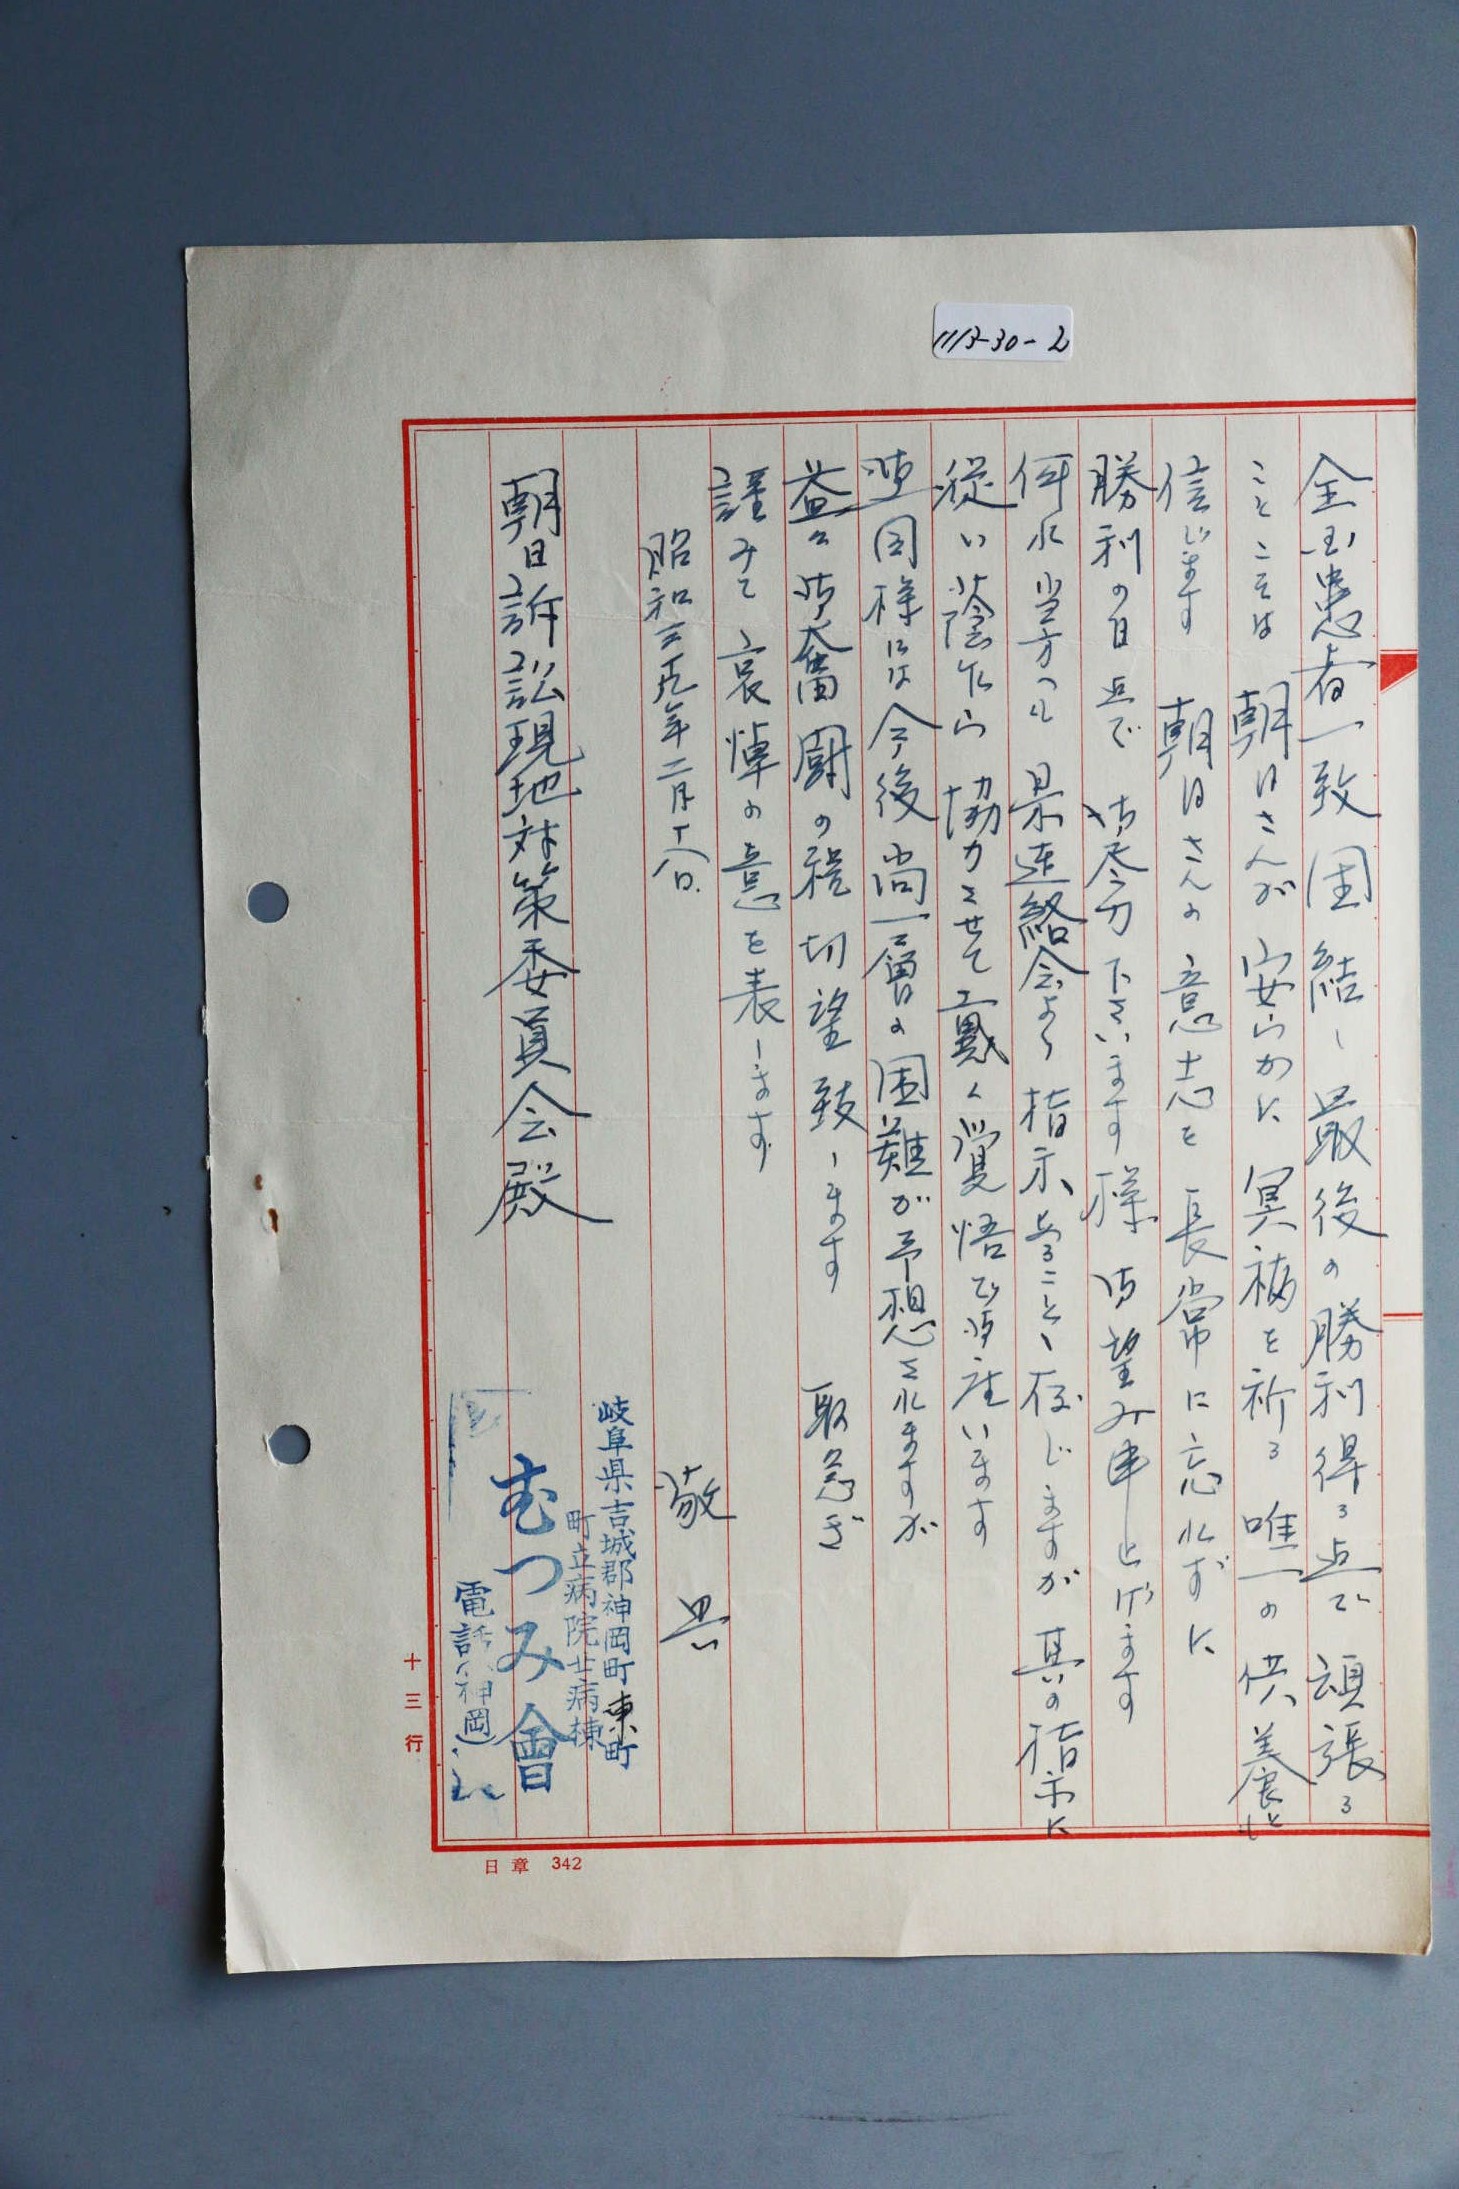 1113-30-2
全国患者一致団結し最後の勝利得る迄で頑張る
ことこそは朝日さんが安らかに冥福を祈る唯一の供養と
信じます 朝日さんの意志を長常に忘れずに
勝利の日迄で御尽力下さいます様御望み申し上げます
何れ当方へも県連絡会より指示あること、存じますが其の指示に
従い蔭乍ら協力させて戴く覚悟で御座います
御同様には今後尚一層の困難が予想されますが
益々御奮闘の程切望致します 取急ぎ
謹みて哀悼の意を表します
敬具
昭和三九年二月十八日
岐阜県吉城郡神岡町東町
町立病院北病棟
むつみ會
電話(神岡)
朝日訴訟現地対策委員会殿
十三行
日章 342